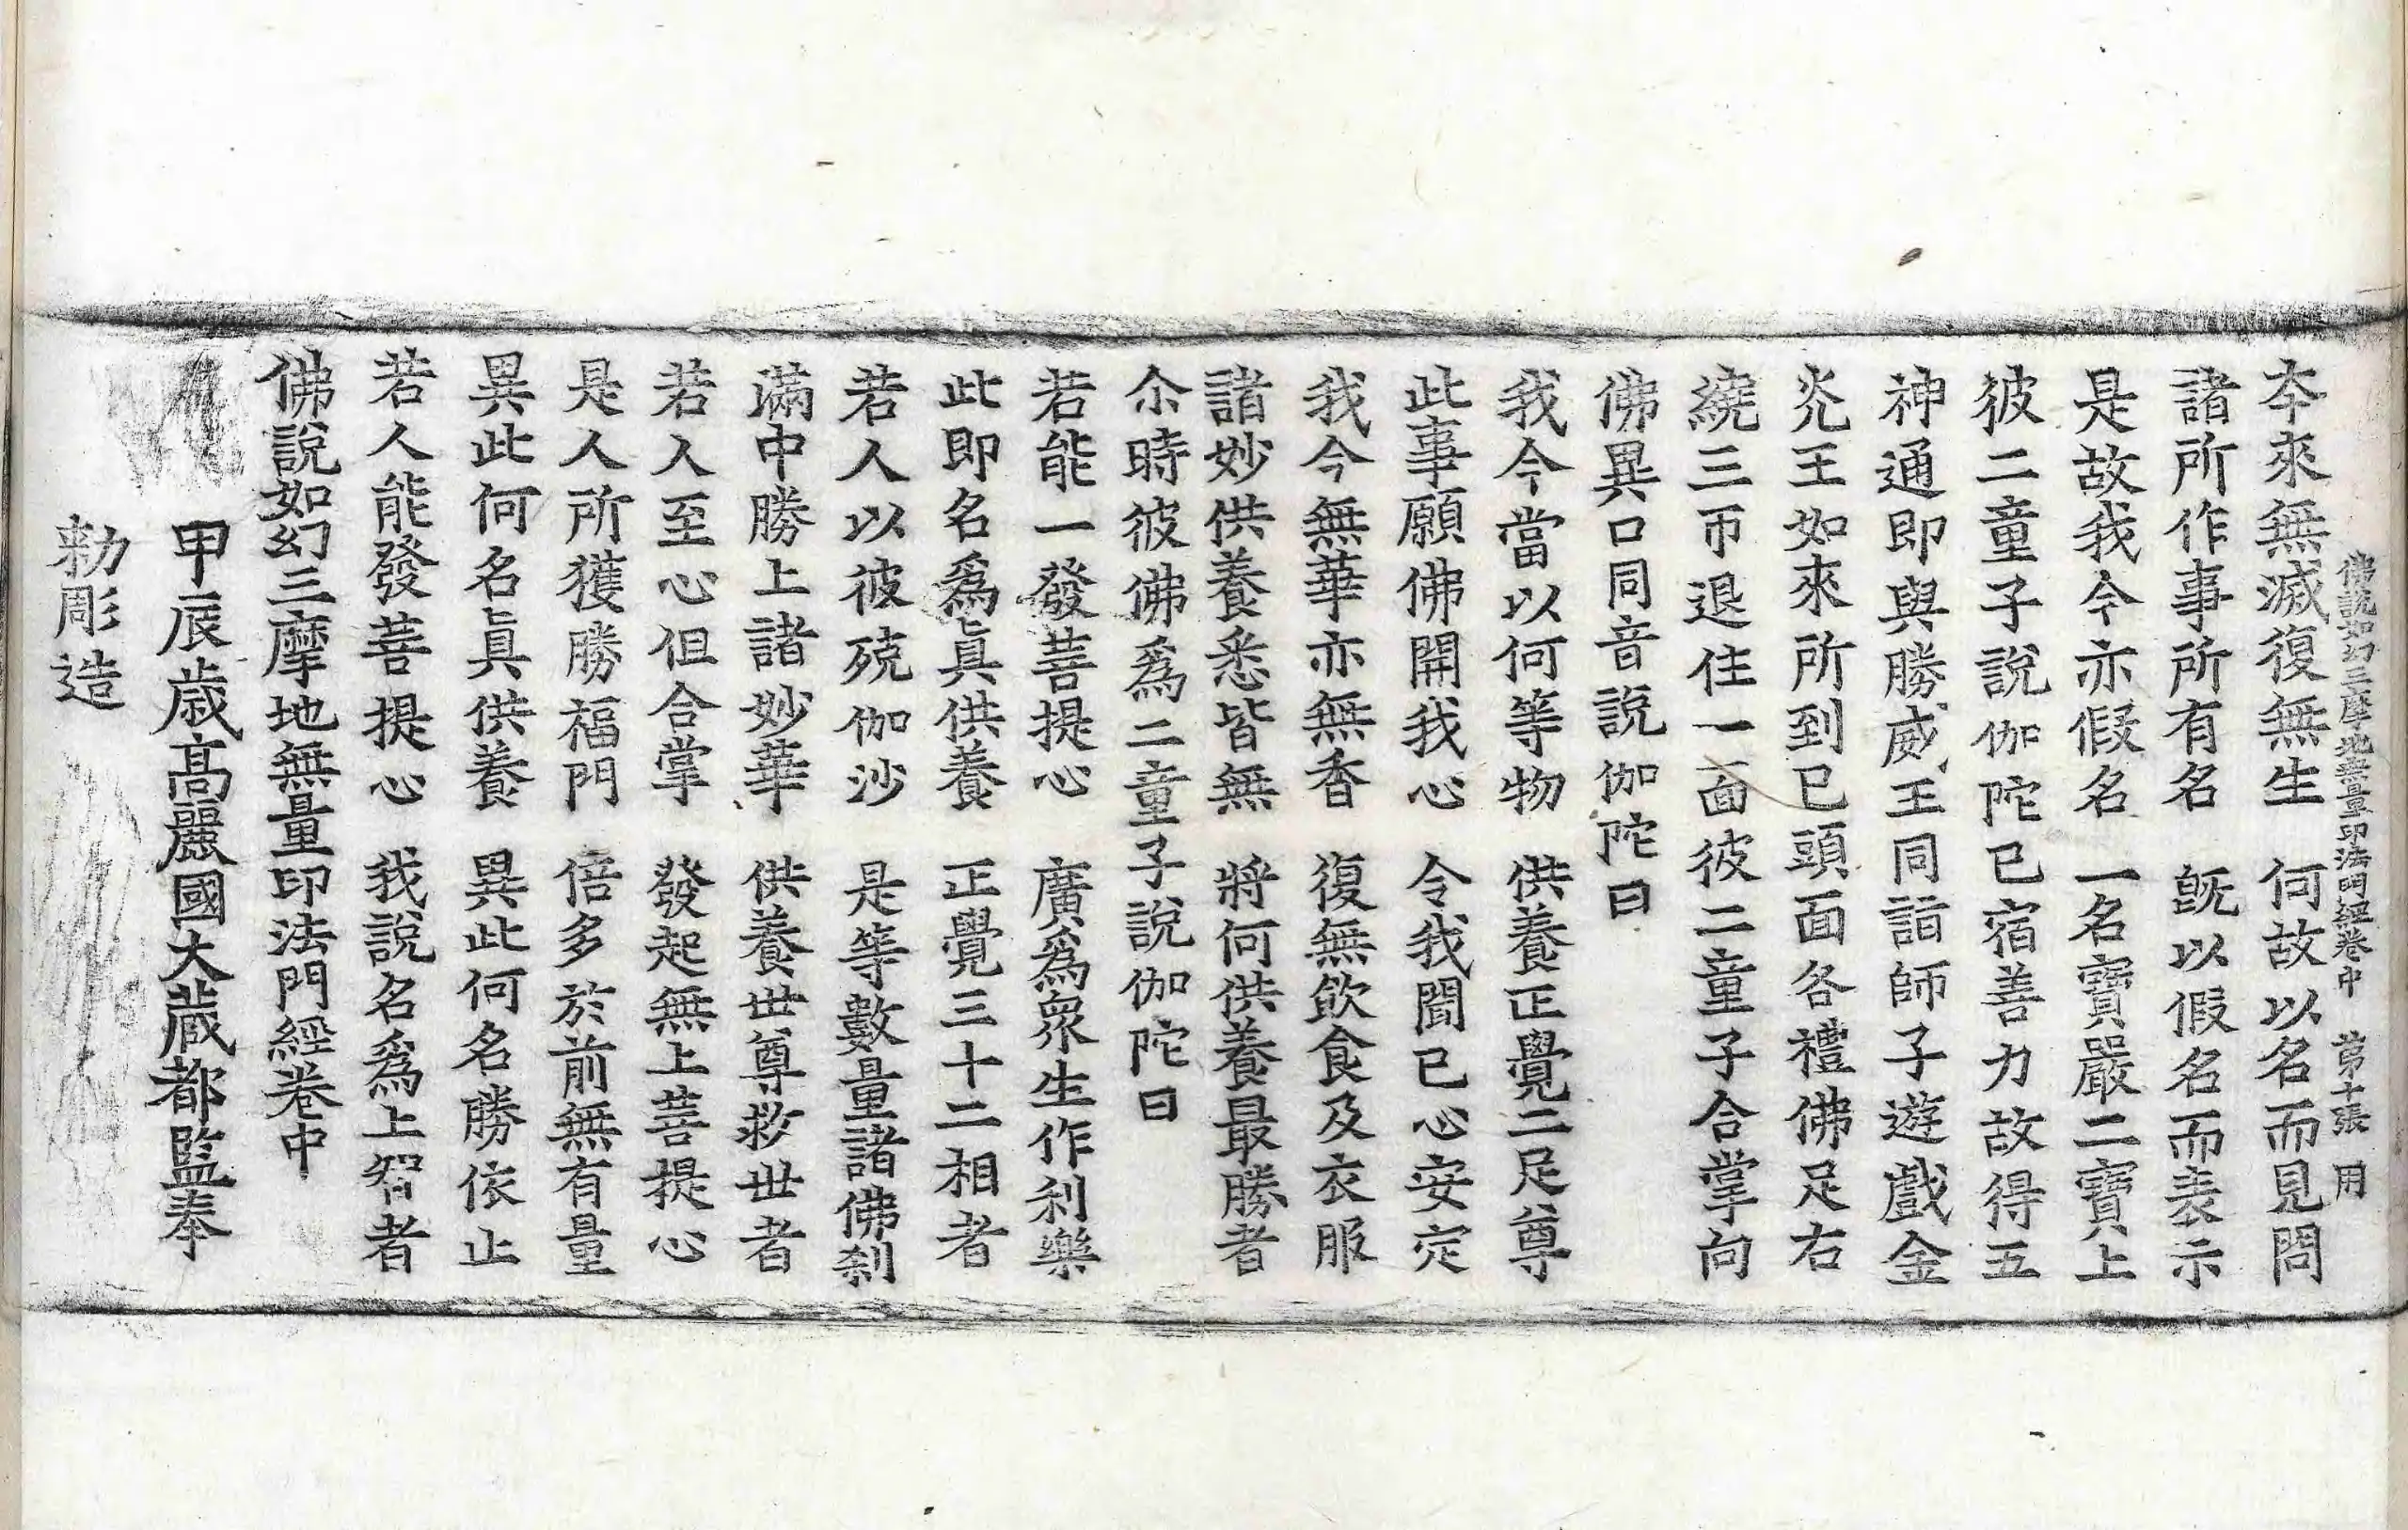 佛說如幻三摩地無量印法門經卷中 第十張 用
夲來無滅復無生 何故以名而見問
諸所作事所有名 旣以假名而表示
是故我今亦假名 一名寶嚴二寶上
彼二童子說伽陀已宿善力故得五
神通即與勝威王同詣師子遊戲金
光王如來所到已頭面各禮佛足右
繞三帀退住一面彼二童子合掌向
佛異口同音說伽陀曰
我今當以何等物 供養正覺二足尊
此事願佛開我心 令我聞已心安定
我今無華亦無香 復無飮食及衣服
諸妙供養悉皆無 將何供養最勝者
尒時彼佛爲二童子說伽陀曰
若能一發菩提心 廣爲衆生作利樂
此即名爲眞供養 正覺三十二相者
若人以彼殑伽沙 是等數量諸佛刹
滿中勝上諸妙華 供養世尊救世者
若人至心但合掌 發起無上菩提心
是人所獲勝福門 倍多於前無有量
異此何名眞供養 異此何名勝依止
若人能發菩提心 我說名爲上智者
佛說如幻三摩地無量印法門經卷中
甲辰歲高麗國大藏都監奉
勅彫造